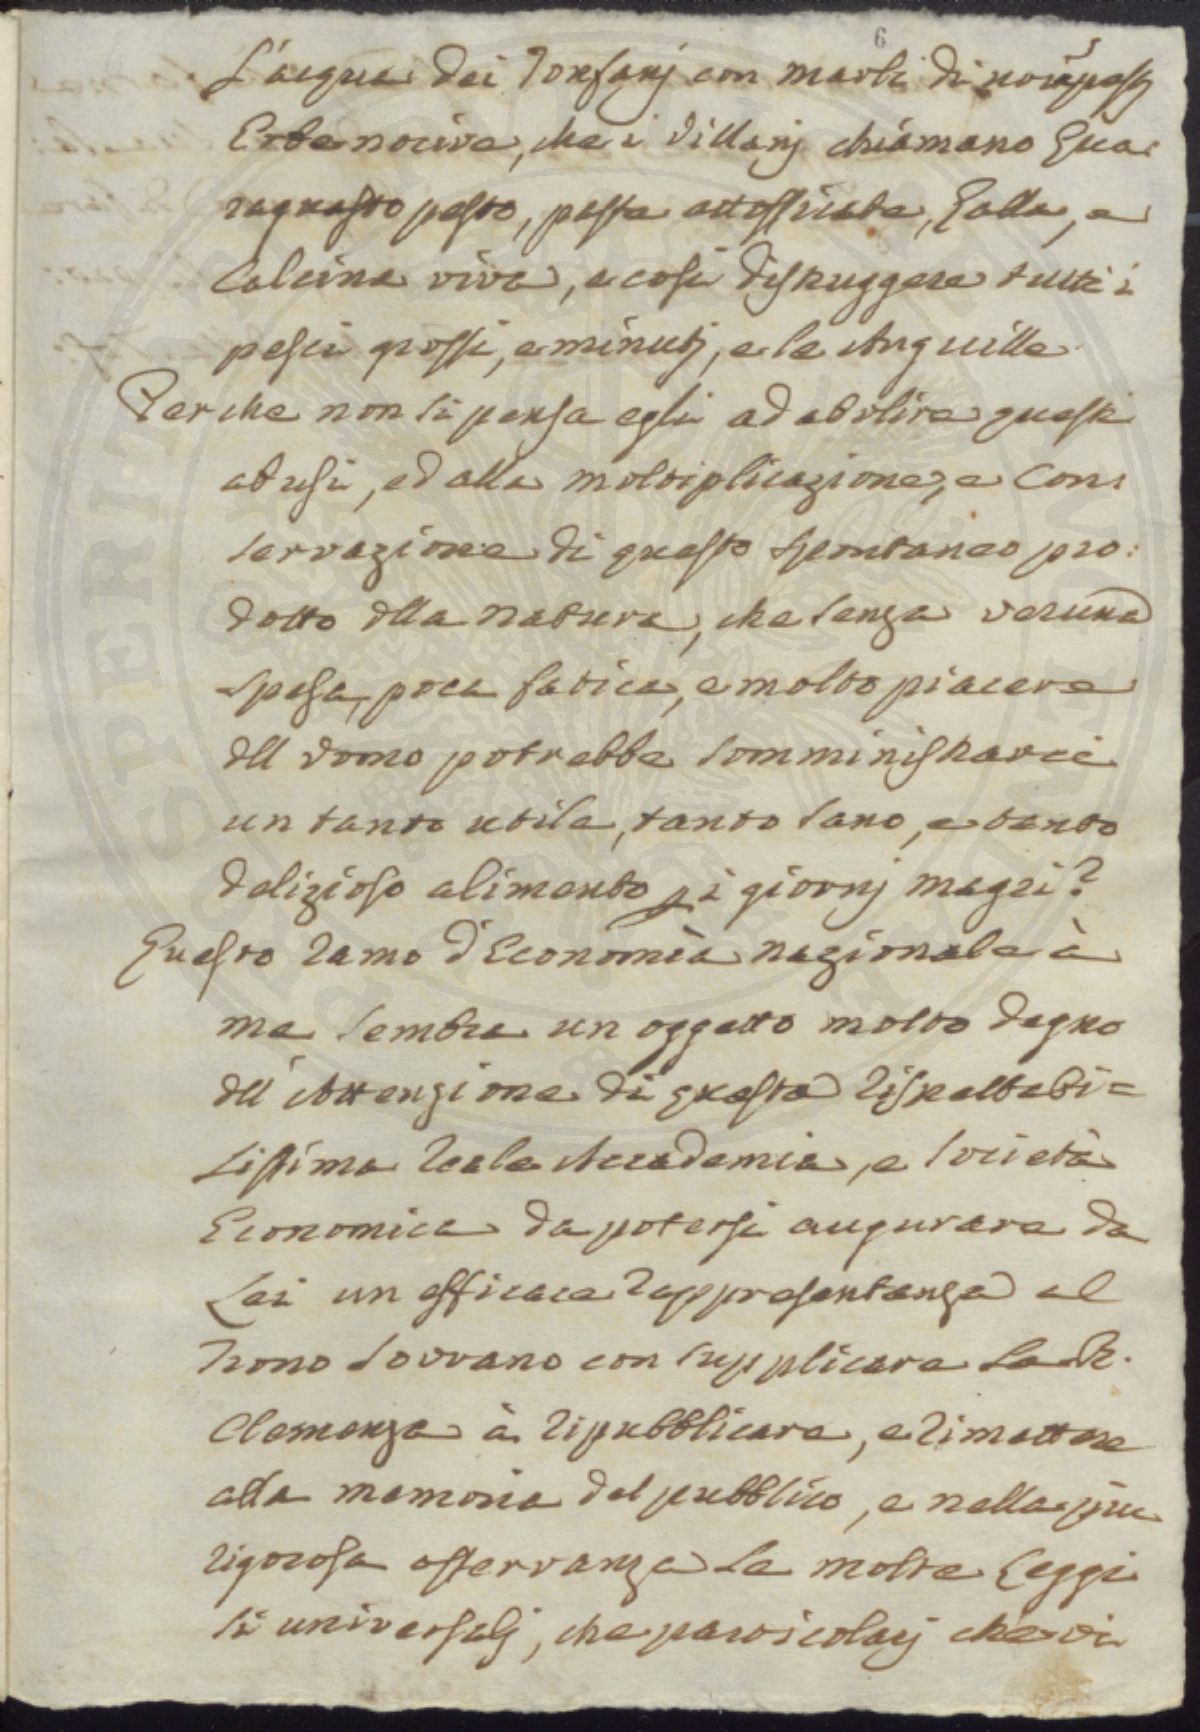 6
L'acqua dei Tonfanj con marli di
Erbe nocive, che i Villanj chiamano Qua:
raguasto pesto, paste attossicate, Galla, e
Calcina viva, e così distruggere tutti i
pesci grossi, e minutj, e le Anguille
Perche non si pensa egli ad abolire questi
abusi, ed alla moltiplicazione, e Con:
servazione di questo spontaneo pro:
dotto dlla natura, che senza veruna
spesa, poca fatica, e molto piacere
dll Uomo potrebbe somministrarci
un tanto utile, tanto sano, e tanto
delizioso alimento pi giornj magri?
Questo ramo d'Economia nazionale à
me sembra un oggetto molto degno
dll'Attenzione di questa rispettabi=
lissima Reale Accademia, e Società
Economica da potersi augurare da
Lei un efficace rappresentanza al
Trono Sovrano con supplicare la R.
Clemenza à ripubblicare, e rimettere
alla memoria del pubblico, e nella più
rigorosa osservanza le molte Leggi
si universalj, che particolarj che vi